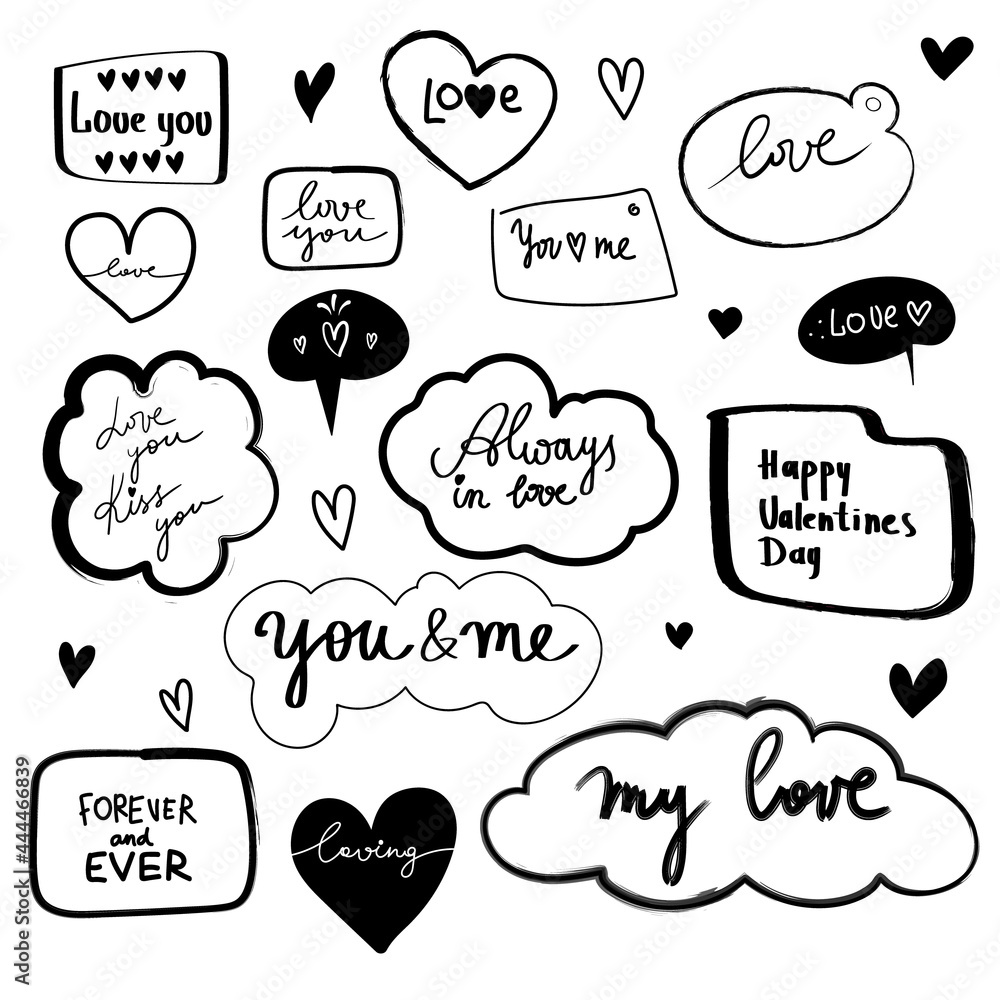 Love you
Love
love
love
you
You me
love
Love
Love
you
Kiss
you
Always
in love
Happy
Valentines
Day
you & me
my love
FOREVER
and
EVER
loving
Adobe Stock | #444466839